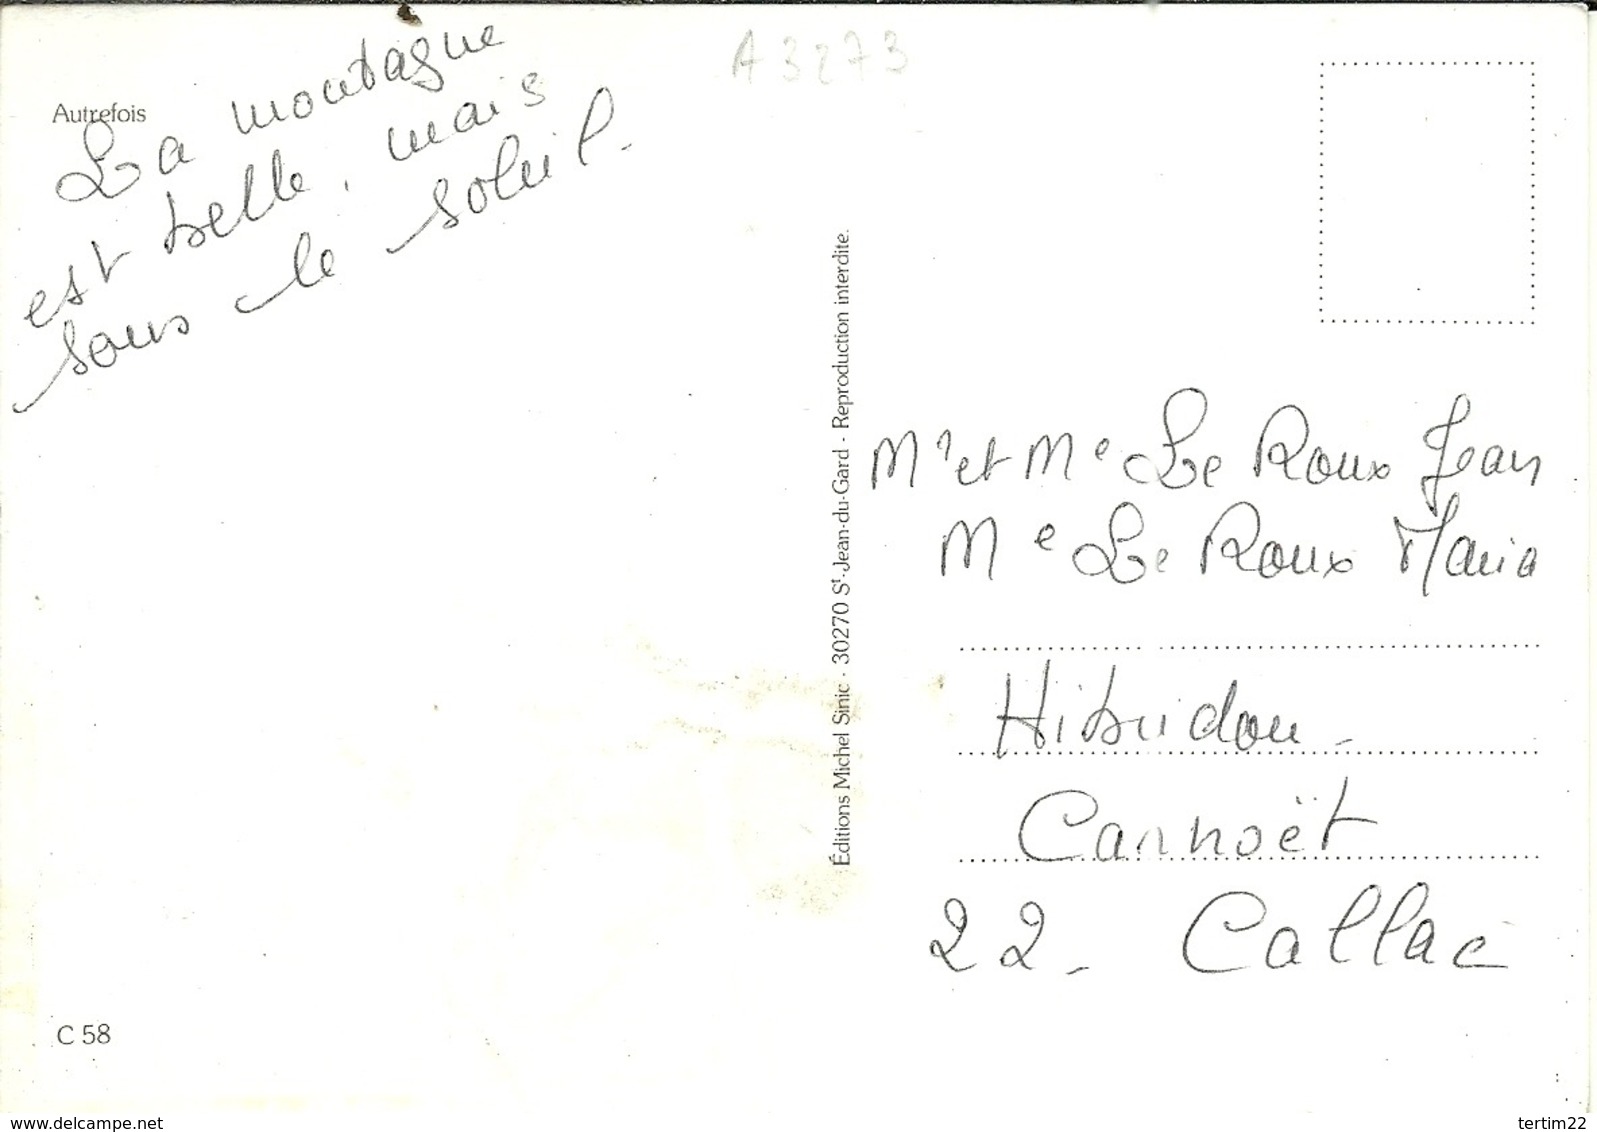 A3273
Autrefois
La montagne
est belle, mais
sous le soleil.
Éditions Michel Sinic - 30270 St-Jean-du-Gard - Reproduction interdite.
Mr et Me Le Roux Jean
Me Le Roux Maria
Hibridou -
Carnoët
22 - Callac
C 58
www.delcampe.net
tertim22